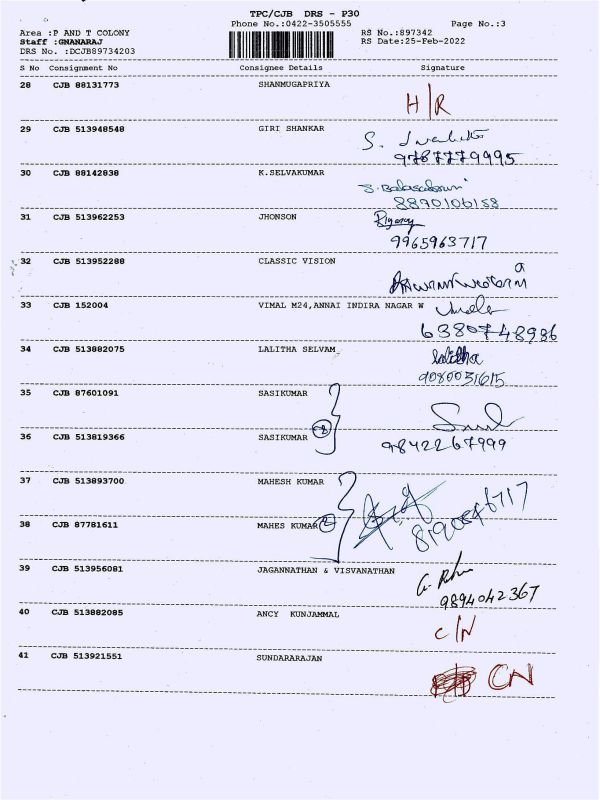 TPC/CJB DRS - P30
Phone No.:0422-3505555 Page No.:3
Area :P AND T COLONY RS No.:897342
Staff :GNANARAJ RS Date:25-Feb-2022
DRS No. :DCJB89734203
S No Consignment No Consignee Details Signature
28 CJB 88131773 SHANMUGAPRIYA
H/R
29 CJB 513948548 GIRI SHANKAR
S.
9787779995
30 CJB 88142838 K.SELVAKUMAR
8890106158
31 CJB 513962253 JHONSON
9965963717
32 CJB 513952288 CLASSIC VISION
33 CJB 152004 VIMAL M24,ANNAI INDIRA NAGAR W
6380748986
34 CJB 513882075 LALITHA SELVAM
Lalitha
9080031615
35 CJB 87601091 SASIKUMAR
36 CJB 513819366 SASIKUMAR 2
9842267999
37 CJB 513893700 MAHESH KUMAR
38 CJB 87781611 MAHES KUMAR 2
39 CJB 513956081 JAGANNATHAN & VISVANATHAN
9894042367
40 CJB 513882085 ANCY KUNJAMMAL
C/N
41 CJB 513921551 SUNDARARAJAN
CN